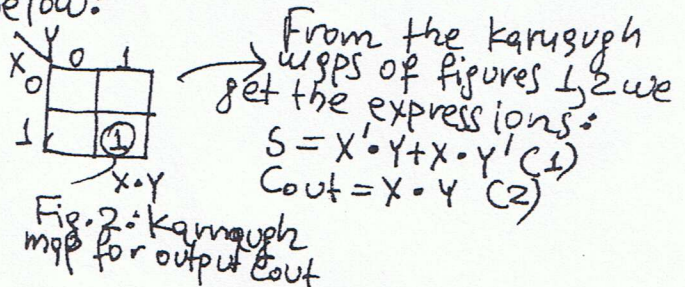 below.
Y
X 0 1
0
1 1
X·Y
Fig.2: Karnaugh
map for output Cout
From the Karugugh
maps of figures 1,2 we
get the expressions:
S = X'·Y+X·Y' (1)
Cout = X·Y (2)